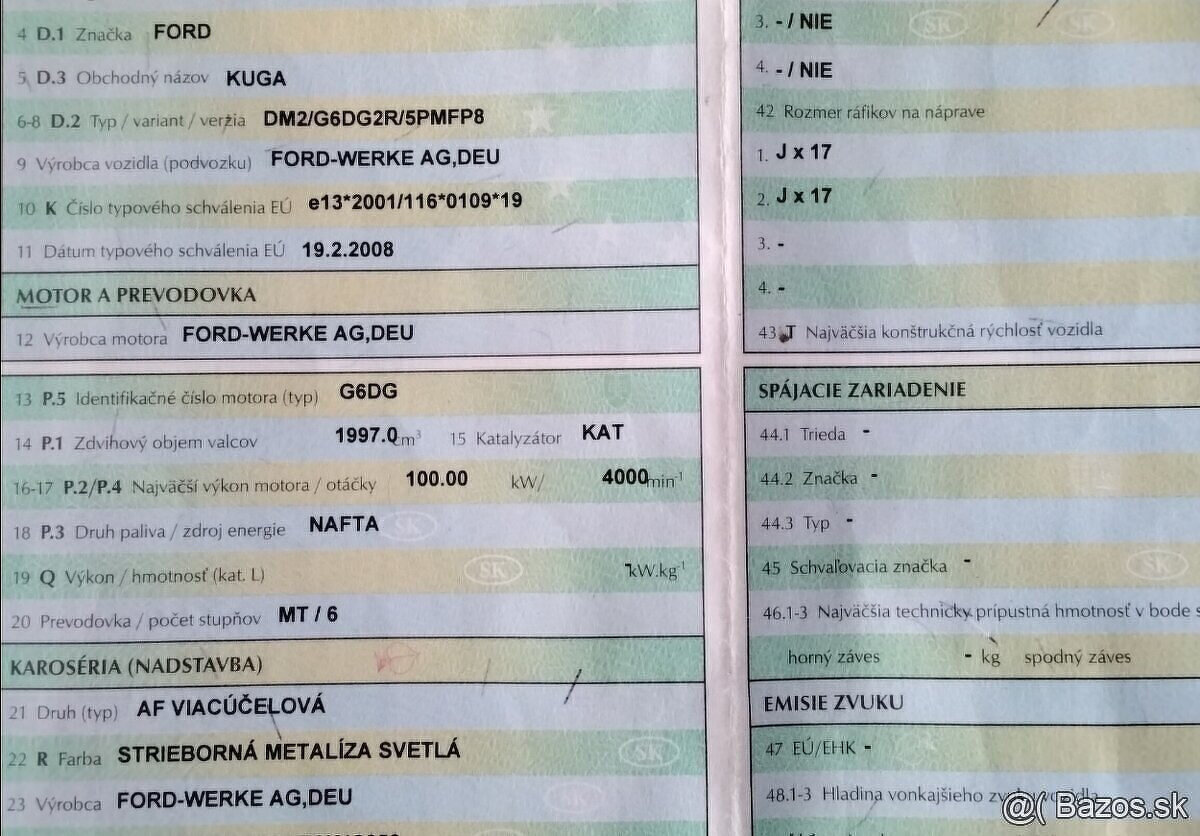 4 D.1 Značka FORD
5 D.3 Obchodný názov KUGA
6-8 D.2 Typ / variant / verzia DM2/G6DG2R/5PMFP8
9 Výrobca vozidla (podvozku) FORD-WERKE AG,DEU
10 K Číslo typového schválenia EÚ e13*2001/116*0109*19
11 Dátum typového schválenia EÚ 19.2.2008
MOTOR A PREVODOVKA
12 Výrobca motora FORD-WERKE AG,DEU
13 P.5 Identifikačné číslo motora (typ) G6DG
14 P.1 Zdvihový objem valcov 1997.0 cm³ 15 Katalyzátor KAT
16-17 P.2/P.4 Najväčší výkon motora / otáčky 100.00 kW/ 4000 min⁻¹
18 P.3 Druh paliva / zdroj energie NAFTA SK
19 Q Výkon / hmotnosť (kat. L) SK kW.kg⁻¹
20 Prevodovka / počet stupňov MT / 6
KAROSÉRIA (NADSTAVBA)
21 Druh (typ) AF VIACÚČELOVÁ
22 R Farba STRIEBORNÁ METALÍZA SVETLÁ SK
23 Výrobca FORD-WERKE AG,DEU
3. - / NIE SK SK
4. - / NIE
42 Rozmer ráfikov na náprave
1. J x 17
2. J x 17
3. -
4. -
43 T Najväčšia konštrukčná rýchlosť vozidla
SPÁJACIE ZARIADENIE
44.1 Trieda -
44.2 Značka -
44.3 Typ -
45 Schvaľovacia značka - SK
46.1-3 Najväčšia technicky prípustná hmotnosť v bode s
horný záves - kg spodný záves
EMISIE ZVUKU
47 EÚ/EHK -
48.1-3 Hladina vonkajšieho zvuku vozidla
@( Bazos.sk